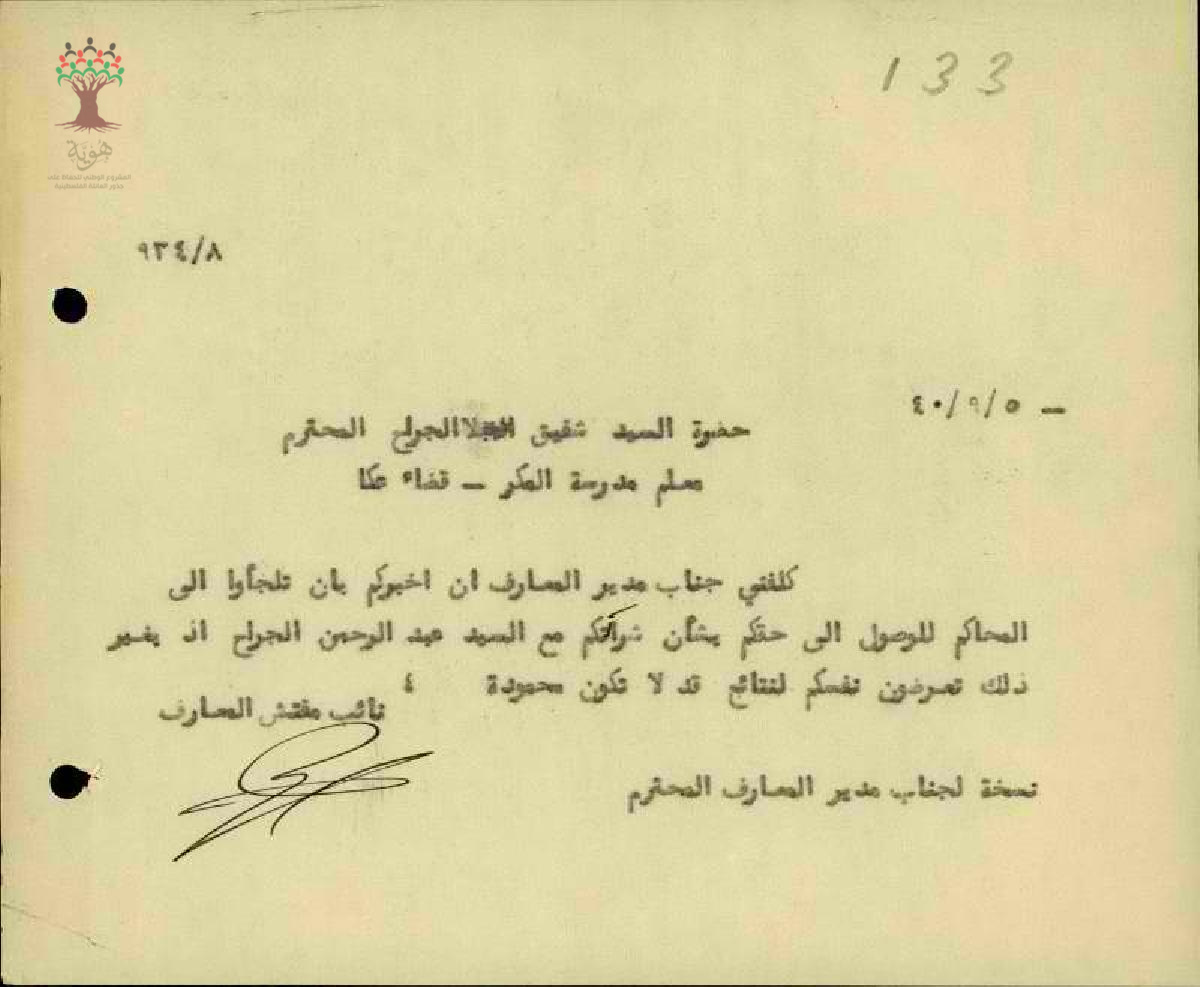 133
هُويّة
المشروع الوطني للحفاظ على
جذور العائلة الفلسطينية
٩٣٤/٨
ـ ٤٠/٩/٥
حضرة السيد شفيق الجراح المحترم
معلم مدرسة المكر ـ قضاء عكا
كلفني جناب مدير المعارف ان اخبركم بان تلجأوا الى
المحاكم للوصول الى حقكم بشأن شراكتكم مع السيد عبد الرحمن الجراح اذ بغير
ذلك تعرضون نفسكم لنتائج قد لا تكون محمودة ٤
نائب مفتش المعارف
نسخة لجناب مدير المعارف المحترم